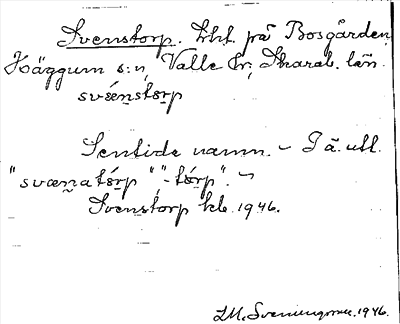 Svenstorp. Lht. på Bosgården,
Häggum s:n, Valle hr, Skarab. län.
svǽnstɷrp
Sentida namn. – I ä. utt.
"svænatórp", "-tórp". –
Svenstorp kb. 1946.
J.M. Svenungsson. 1946.